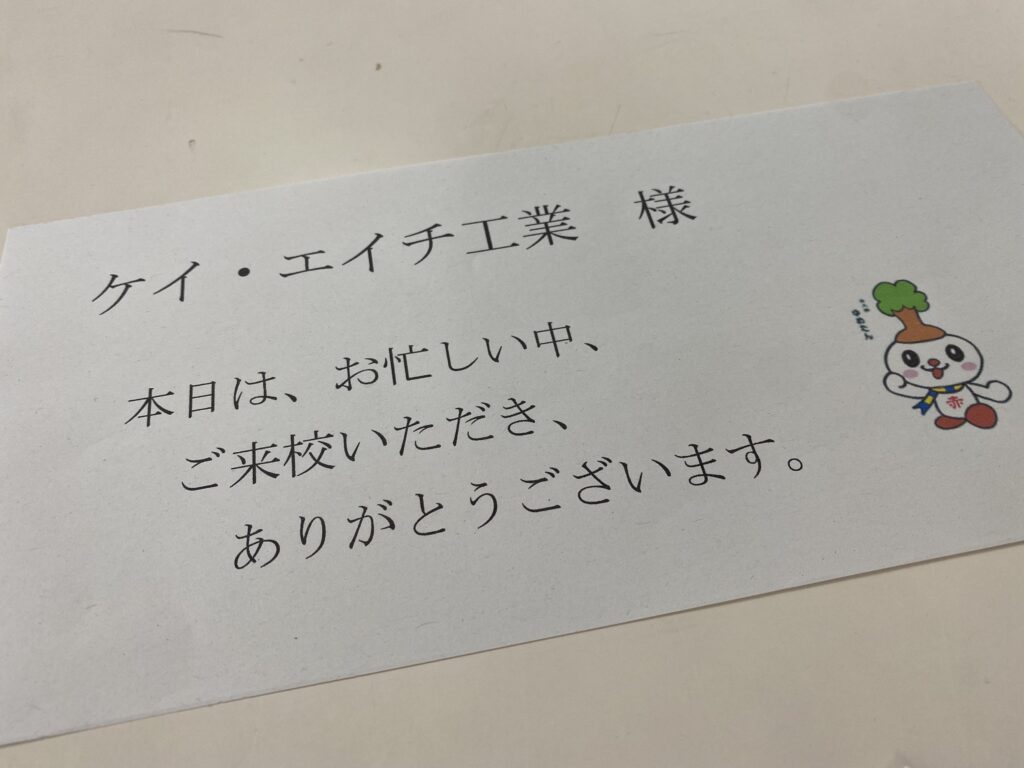 ケイ・エイチ工業　様
本日は、お忙しい中、
ご来校いただき、
ありがとうございます。
赤